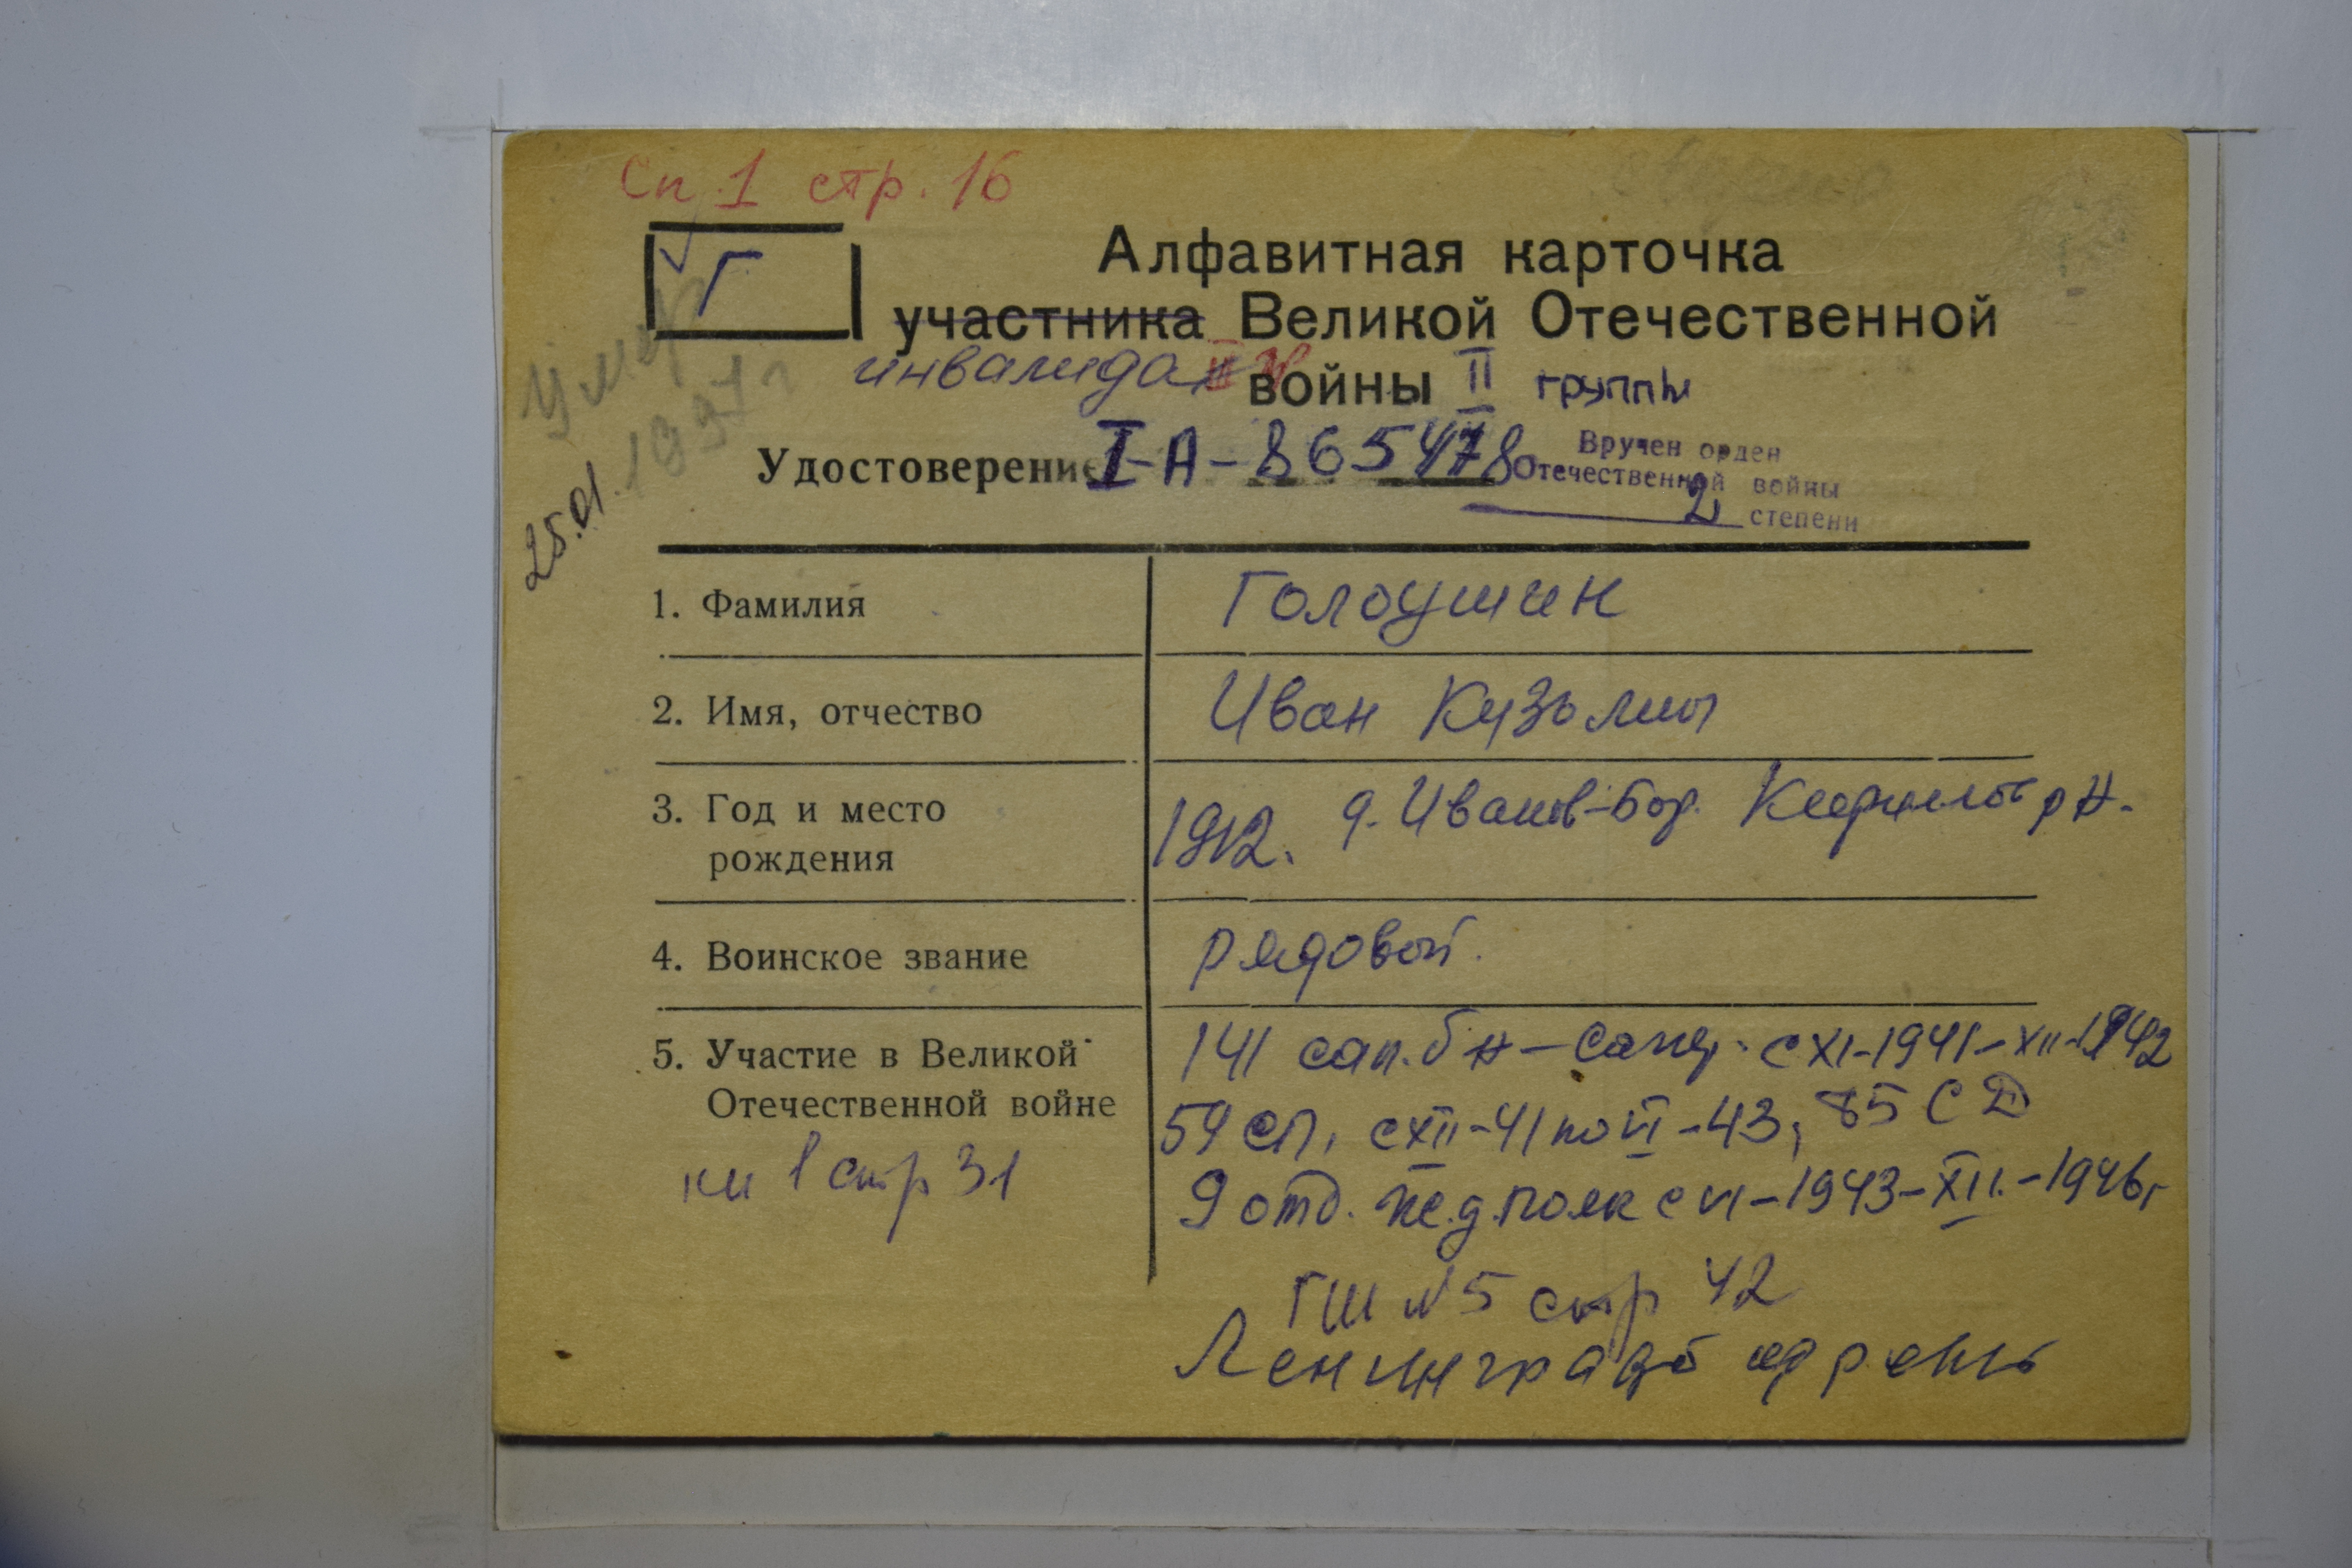 Сп 1 стр. 16
Г
Алфавитная карточка
участника Великой Отечественной
инвалида войны II группы
Умер
25.01.1997г
Удостоверение I-А-865478
Вручен орден
Отечественной войны
2 степени
1. Фамилия Голоушин
2. Имя, отчество Иван Кузьмич
3. Год и место рождения 1912. д. Иванов-Бор. Кирилловс р-н.
4. Воинское звание рядовой.
5. Участие в Великой Отечественной войне
141 сап. бн - с XI-1941-XII-1942
59 СП, с XII-41 по VI-43, 85 СД
9 отд. ж.д. полк с VI-1943-XII.-1946г
кн 1 стр 31
ГШ №5 стр 42